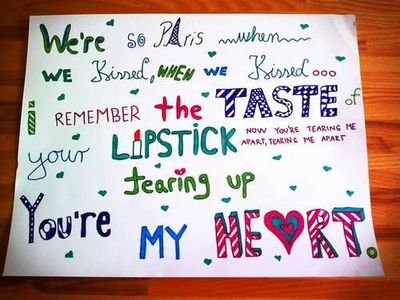 We're so Paris when
we Kissed, when we Kissed...
i REMEMBER the TASTE of
your LIPSTICK NOW YOU'RE TEARING ME
APART, TEARING ME APART
tearing up
You're MY HEART.